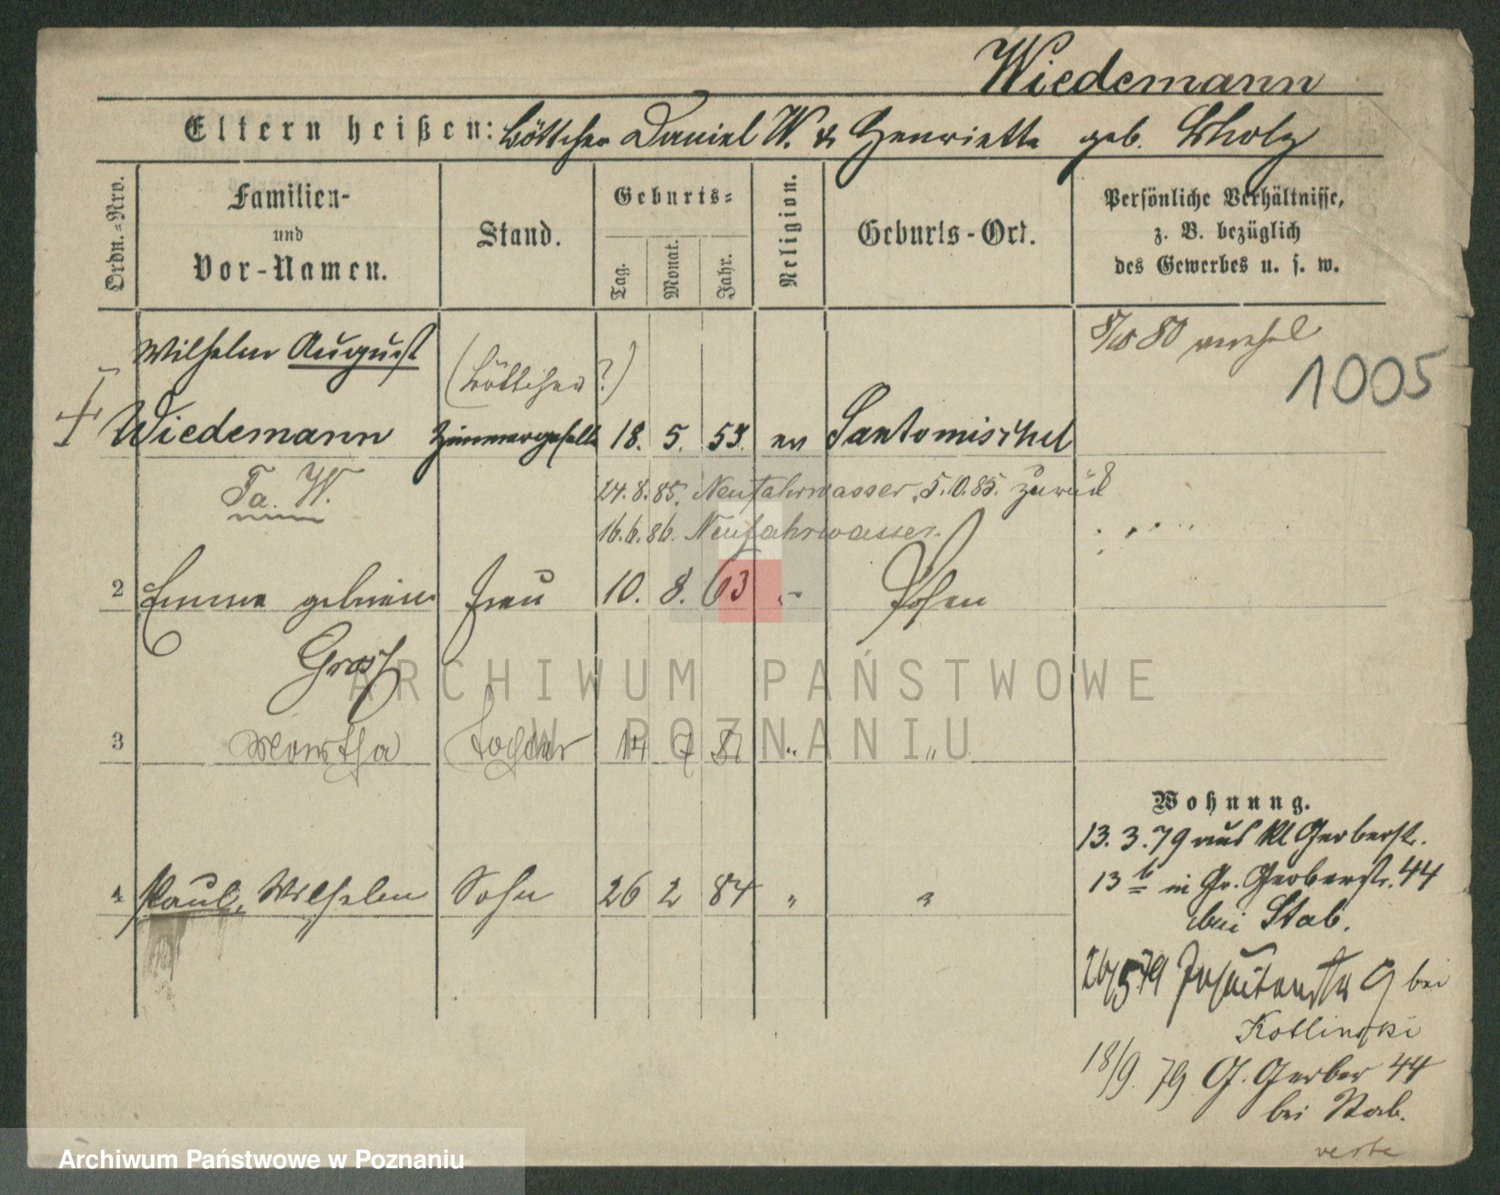 Wiedemann
Eltern heißen: Böttcher Daniel W. & Henriette geb. Scholz
Ordn.-Nro.
Familien-
und
Vor-Namen.
Stand.
Geburts-
Tag.
Monat.
Jahr.
Religion.
Geburts-Ort.
Persönliche Verhältnisse,
z. B. bezüglich
des Gewerbes u. s. w.
Wilhelm August
(Böttcher?)
1005
Wiedemann Zimmergeselle 18. 5. 53. ev Santomischel
Fa. W.
24.8.85. Neufahrwasser, 5.0.85. zurück
16.6.86. Neufahrwasser.
2 Emma geborene Frau 10. 8. 63 Posen
Gross
3 Martha Tochter 14 7 81 " "
4 Paul, Wilhelm Sohn 26 2 84 " "
Wohnung.
13.3.79 aus Kl Gerberstr.
13b in Gr. Gerberstr. 44
bei Stab.
26/5 79 Jesuitenstr 9 bei
Kotlinski
18/9. 79 G. Gerber 44
bei Stab.
ARCHIWUM PAŃSTWOWE
W POZNANIU
Archiwum Państwowe w Poznaniu